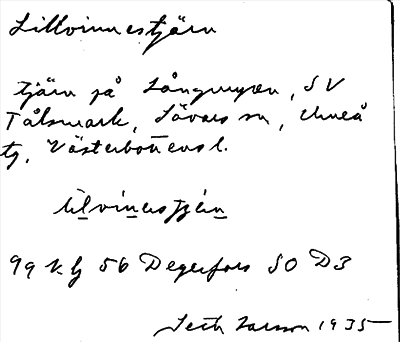 Lillvinnestjärn
tjärn på Långmyren, SV
Tålsmark, Sävars sn, Umeå
tg, Västerbottens l.
lilvinestjén
99 v. g 56 Degerfors SO D3
Seth Larsson 1935